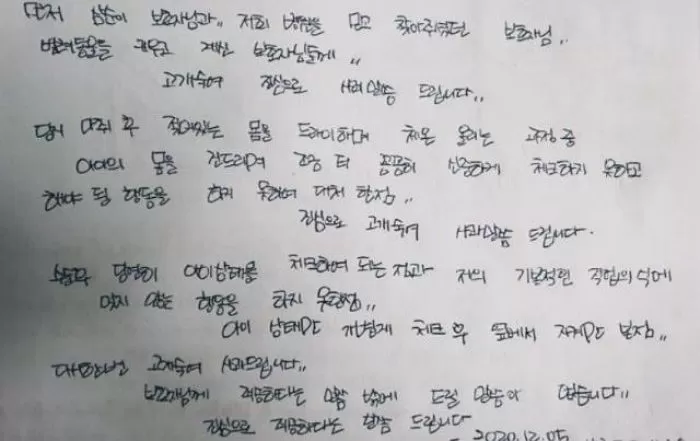 먼저 순순이 보호자님과,, 저희 병원을 믿고 찾아주셨던 보호자님,,
반려동물을 키우고 계신 보호자님들께,,
고개숙여 진심으로 사과말씀 드립니다,,
당시 마취 후 젖어있는 몸을 드라이하며 체온 올리는 과정 중
아이의 몸을 건드리며 조금 더 꼼꼼히 신중하게 체크하지 못하고
해야 될 행동을 하지 못하여 대처 한점,,
진심으로 고개숙여 사과말씀 드립니다.
당연히 아이상태를 체크하여 되는점과 저의 기본적인 직업의식에
맞지 않는 행동을 하지 못한점,,
아이 상태만 체크 후 옆에서 지켜만 본점,,
다시한번 고개숙여 사과드립니다,,
보호자님께 죄송하다는 말씀 밖에 드릴 말씀이 없습니다,,
진심으로 죄송하다는 말씀 드립니다
2020.12.05